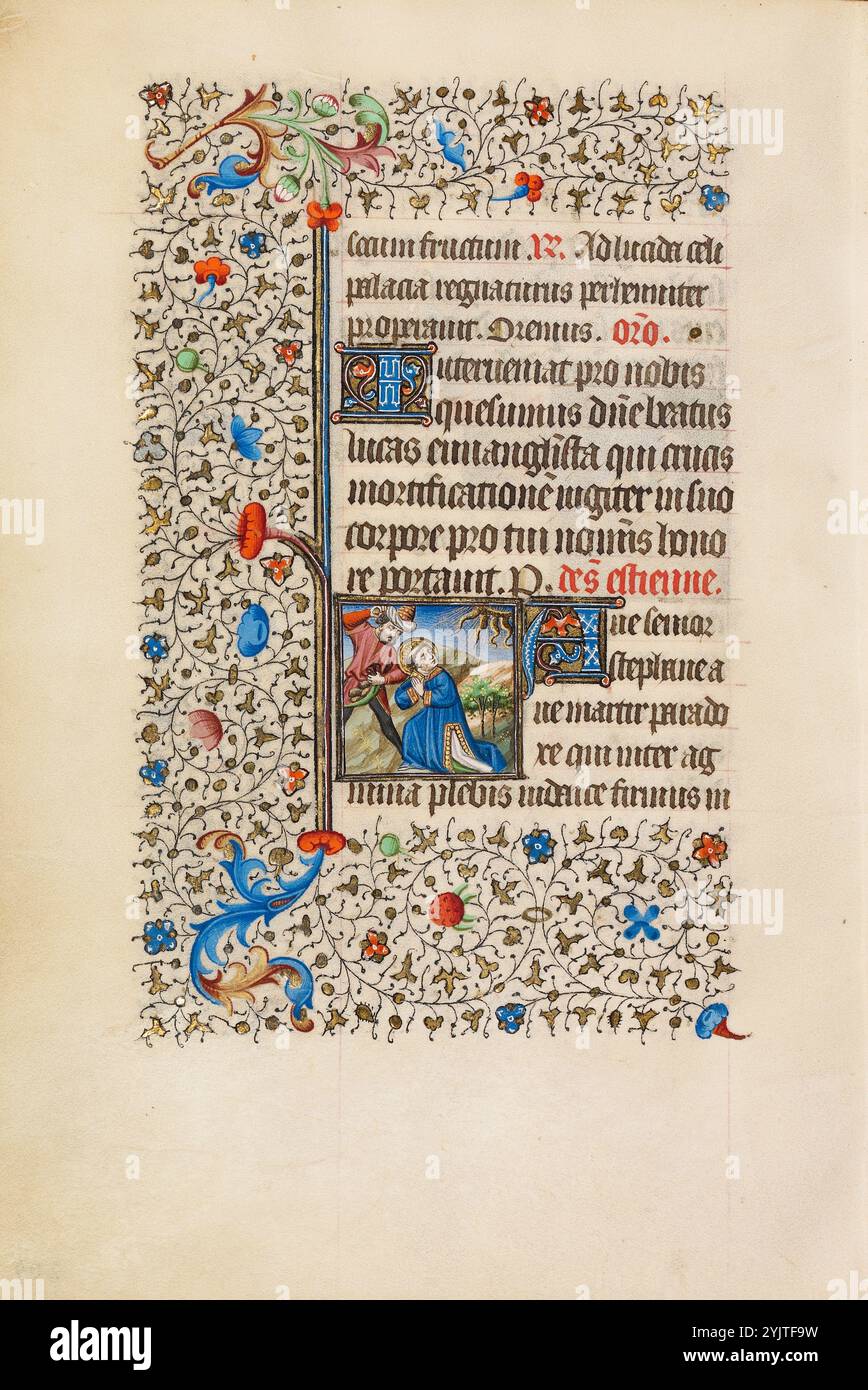 sccum fructum .R. Ad lucida celi
palacia regnaturus perhenniter
properauit. Oremus. orõ.
Interueniat pro nobis
quesumus dñe beatus
lucas euuanglĩsta qui crucis
mortificationẽ iugiter in suo
corpore pro tui nomĩs hono
re portauit. P. des estienne.
Aue senior
stephane a
ue martir parado
xe qui inter ag
mina plebis iudaice firmus in
alamy
Image ID: 2YJTF9W
www.alamy.com